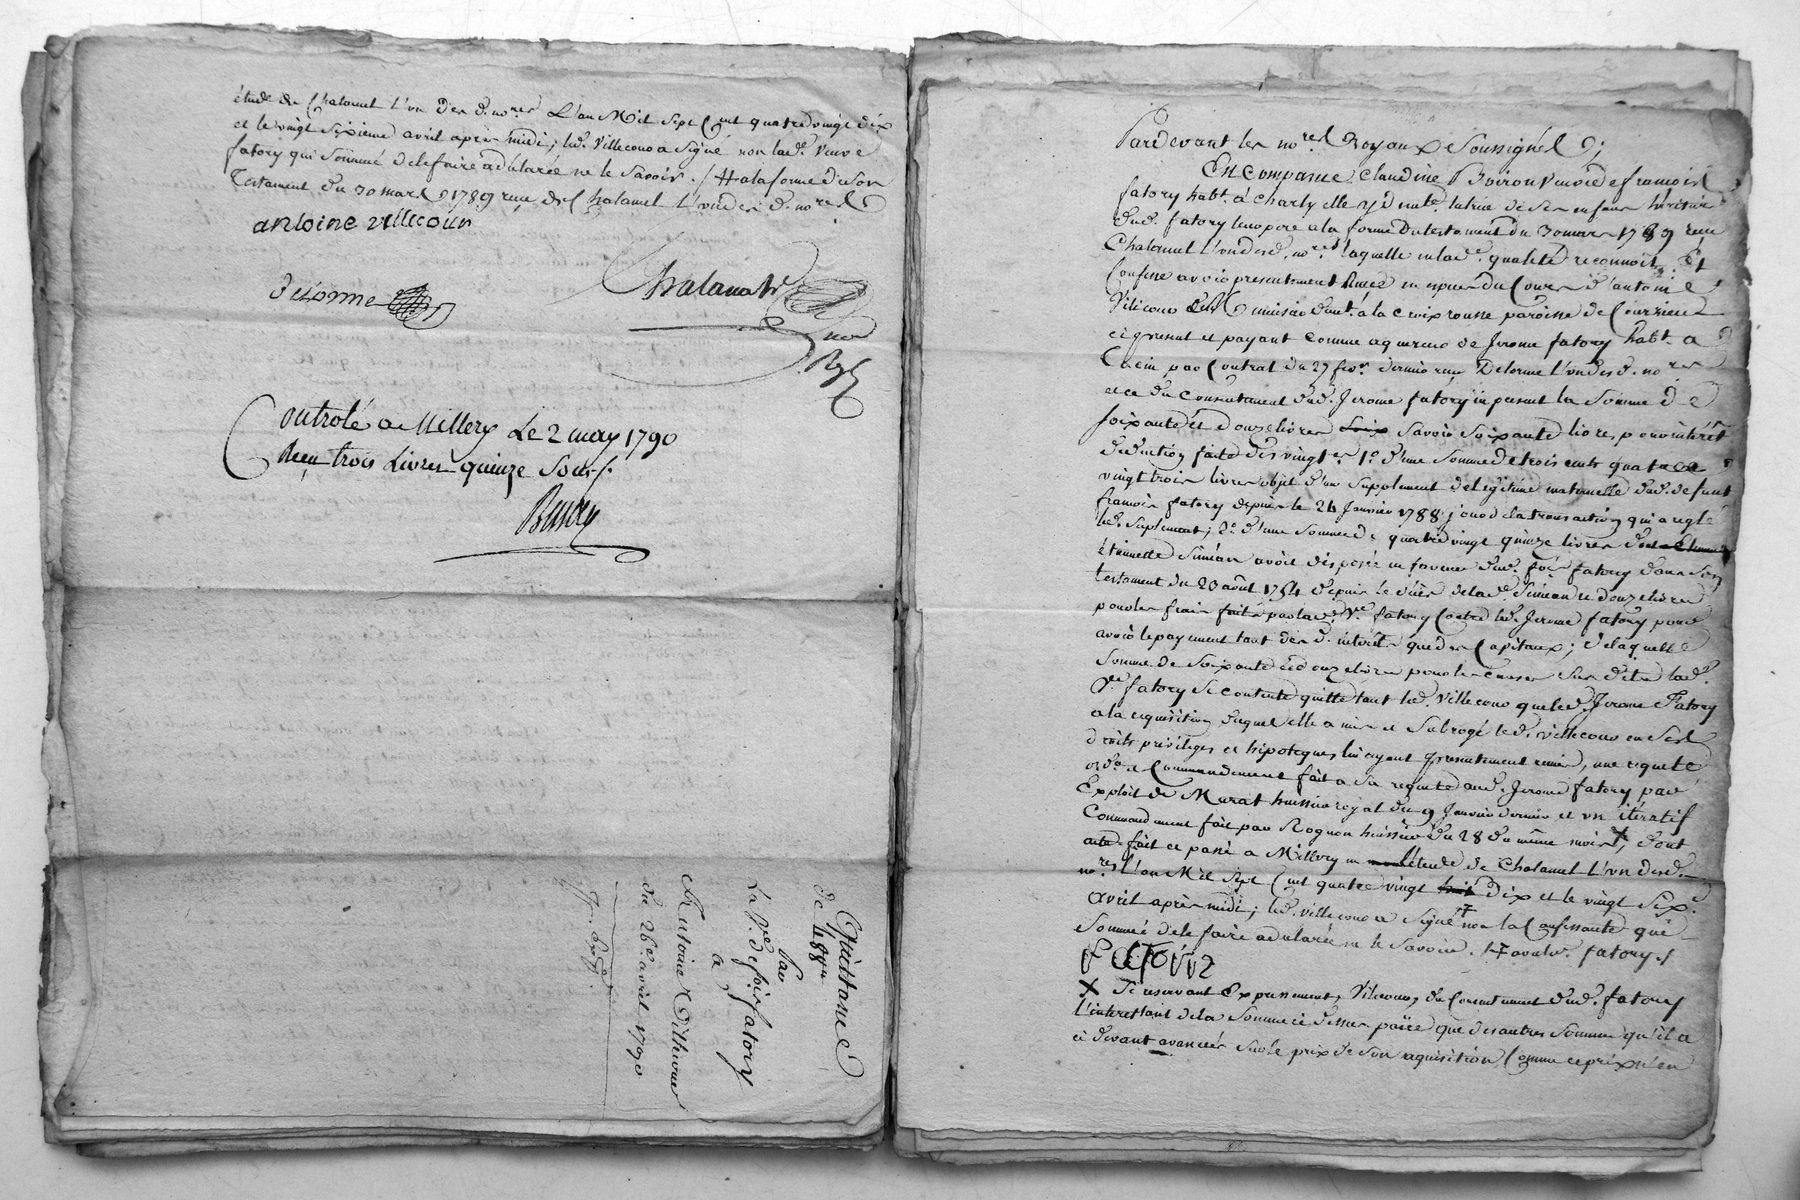 étude de Chalamel l'un des d. no.res L'an Mil sept Cent quatre vingt dix
et le vingt sixieme avril après midi; led. Villecour a signé non lad. veuve
fatory qui sommé de le faire a declarée ne le savoir. / # a la forme de son
Testament du 30 mars 1789 reçu de Chalamel l'un des d. no.res
antoine villecour
Delorme
Chalamel
no.re
Ral
Controlé a Millery Le 2 may 1790
Reçu trois Livres quinze Sous f.
Quittance
de 48ᵗᵗ
Par
La v.e de fois fatory
a
Antoine Villecour
du 26e. avril 1790
Pardevant les no.res Royaux Soussignés;
En Comparue Claudine Boiron veuve de francois
fatory hab.t a charly elle y d mate. tutrice de ses enfans heritiers
dud. fatory leur pere a la forme du testament du 30 mars 1789 reçu
Chalamel l'un des d. no.res laquelle en lad. qualité reconnoit et
Confesse avoir presentement Reçu en especes du Cours d'antoine
Vilecour dem.t a la croix rousse paroisse de Courzieu
ci present et payant comme aquereur de Jerome fatory hab.t a
par Contrat du 27 fevr. dernier reçu Delorme l'un des d. no.res
et ce du Consentement dud. Jerome fatory ici present la Somme de
soixante et douze livres savoir soixante livres pour interêt
deduction faite des vingt.es 1.o d'une somme de trois cents quatre
vingt trois livres objet d'un supplement de legitime maternelle dud. defunt
francois fatory depuis le 24 Janvier 1788 jour de la transaction qui a reglé
led. suplement; 2.o d'une somme de quatre vingt quinze livres dont
étiennette Siméan avoit disposée en faveur dud. fois fatory dans son
testament du 20 août 1754 depuis le décès de lad. Siméan et douze livres
pour les frais faits par lad. v.e fatory Contre led. Jerome fatory pour
avoir le payement tant des d. interêts que des Capitaux; de laquelle
somme de soixante et douze livres pour les causes sus dites lad.
v.e fatory se contente quitte tant led. Villecour que led. Jerome Fatory
a la requisition duquel elle a mis et subrogé led. villecour en ses
droits privileges et hipoteques lui ayant presentement remis, une requete
ord.ce Commandement fait a sa requete aud. Jerome fatory par
Exploit de Murat huissier royal du 9 Janvier dernier et un itératif
Commandement fait par Rognon huissier du 28 du même mois X, dont
acte fait et passé a Millery en l'étude de Chalamel l'un des d.
no.res l'an Mil Sept Cent quatre vingt Dix et le vingt six.e
avril après midi; led. villecour a signé # non la Confessante qui
Sommée de le faire a declarée ne le savoir. # avec led. fatory. /
FATORY
X Se reservant Expressement, Vilecour, du Consentement dud. fatory
L'interet tant de la Somme ci dessus païée que des autres sommes qu'il a
ci devant avancées sur le prix de son aquisition, Comme ce prix n'en